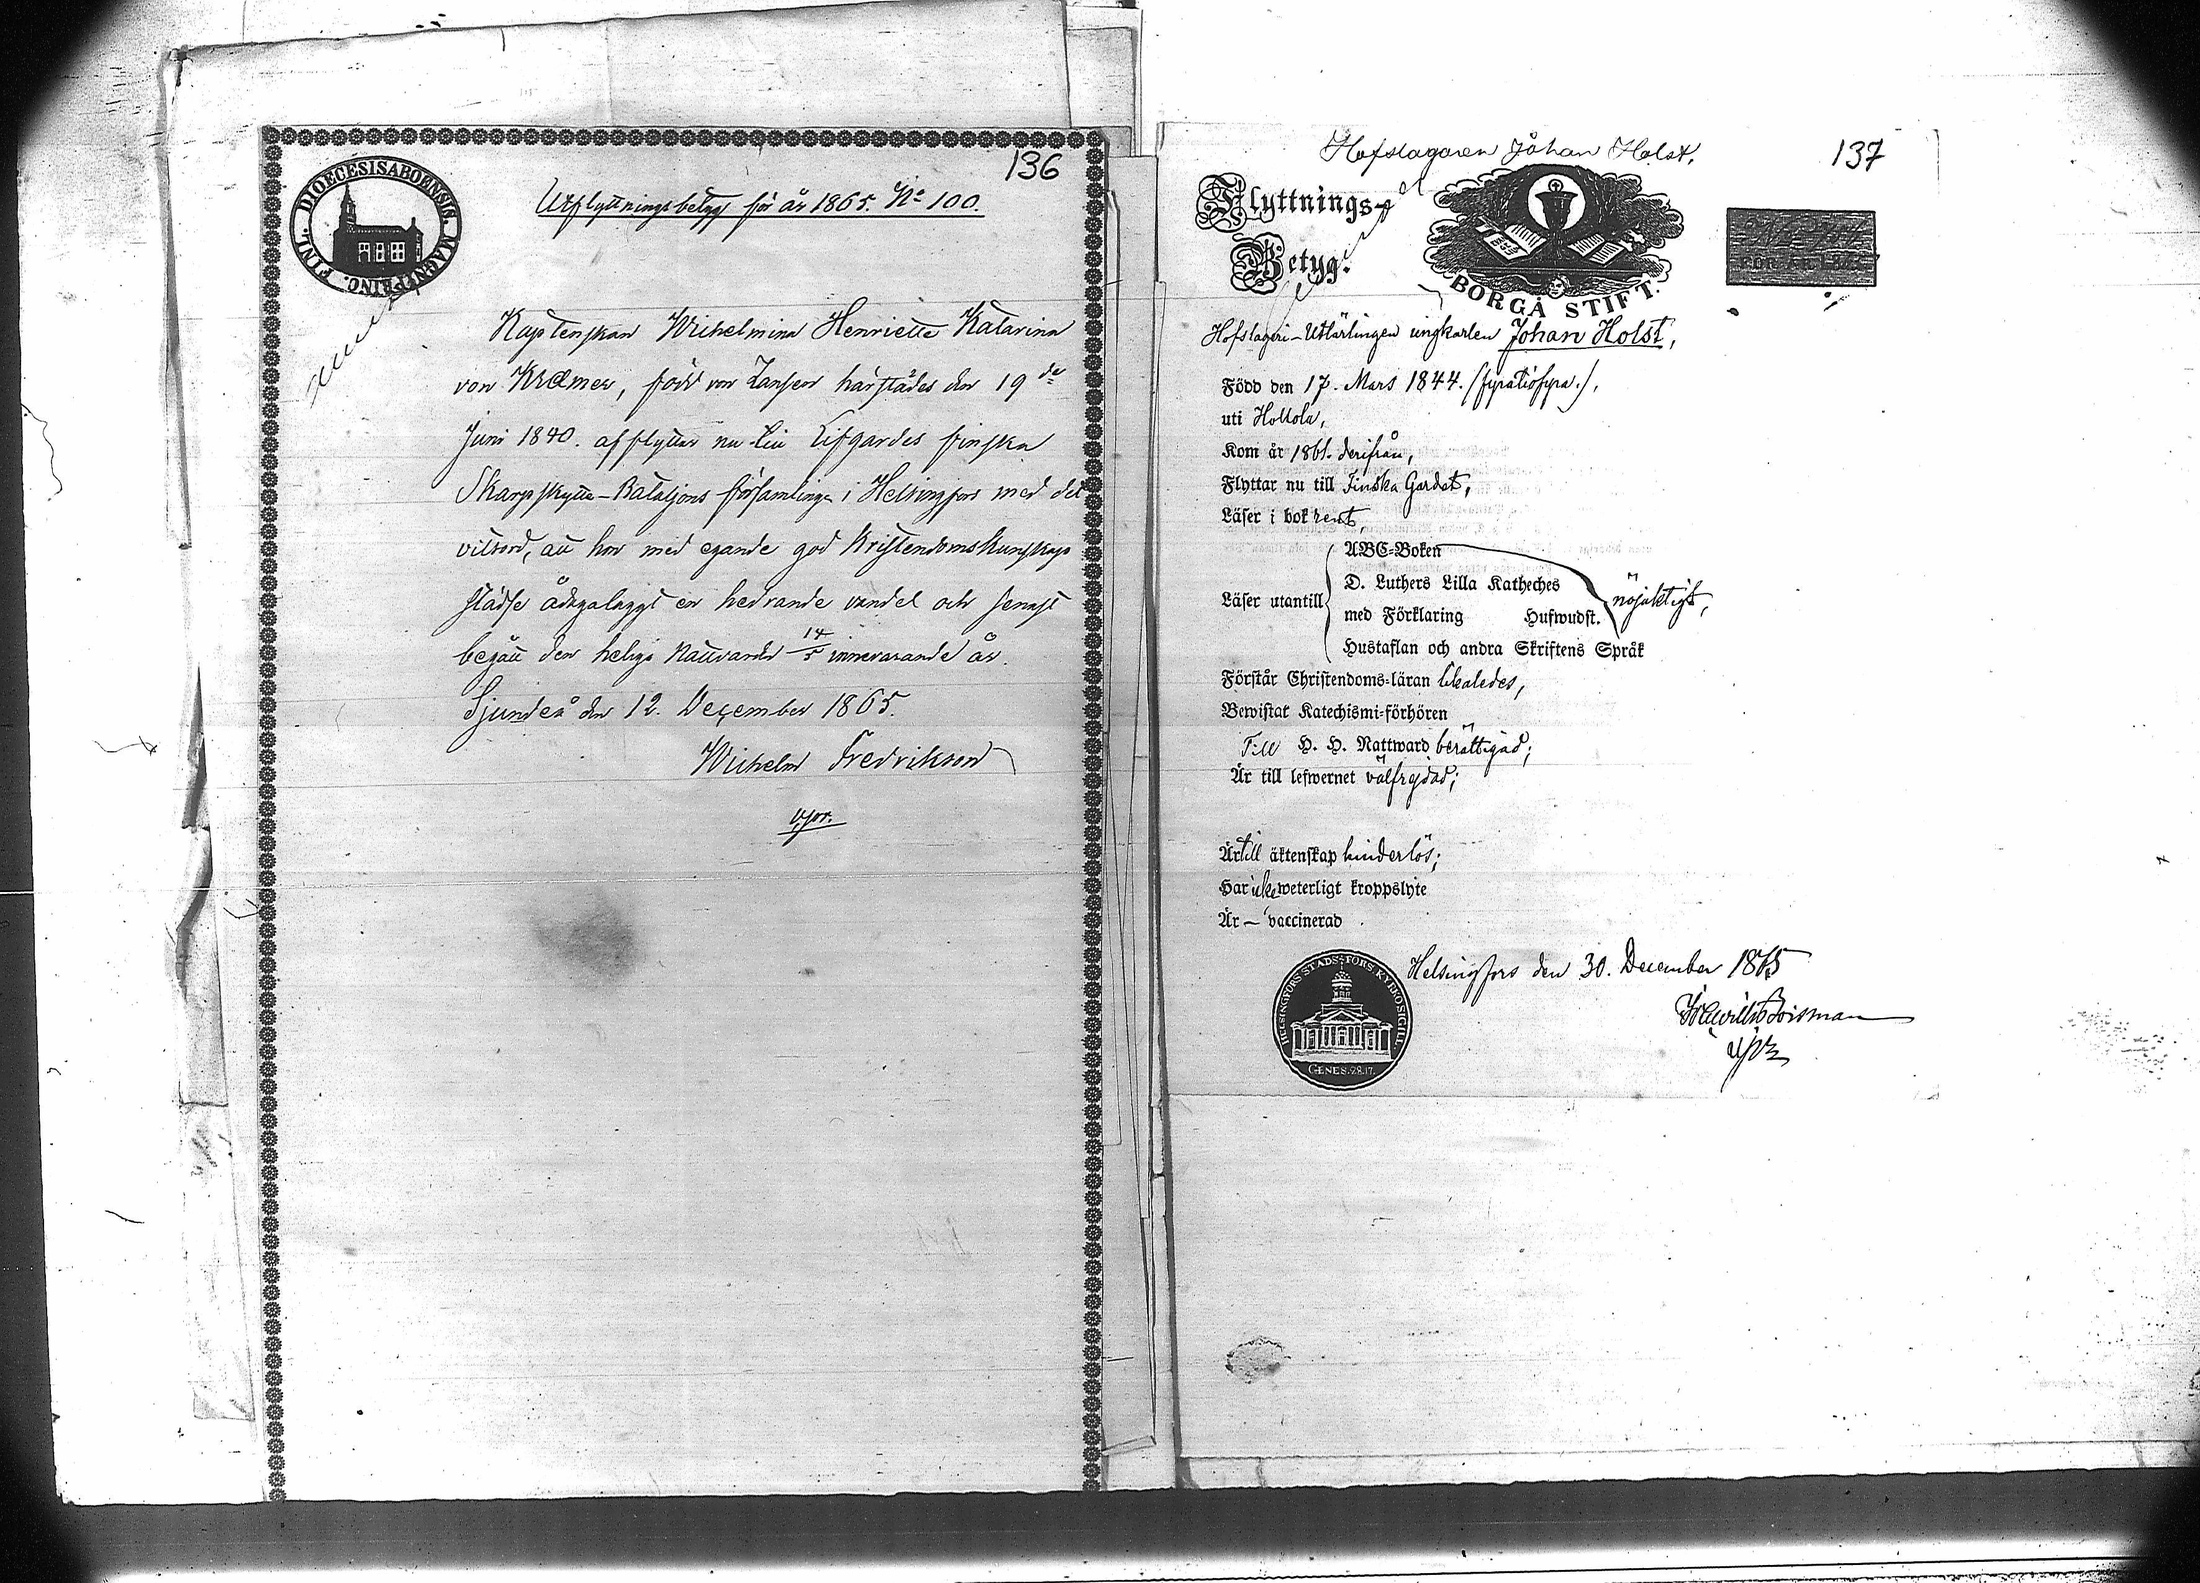 136
DIOECESIS ABOENSIS. MAGN. PRINC. FINL.
Utflyttningsbetyg för år 1865. No 100.
Kaptenskan Wilhelmina Henriette Katarina
von Kræmer, född von Zansen härstädes den 19de
Juni 1840. afflyttar nu till Lifgardes finska
Skarpskytte-Bataljons församling i Helsingfors med det
vitsord, att hon med egande god Kristendomskunskap
städse ådagalaggt en hedrande vandel och senast
begått den heliga Nattvarden 14/5 innevarande år.
Sjundeå den 12. December 1865.
Wilhelm Fredrikson
v.pr.
Hofslagaren Johan Holst.
137
Flyttnings-
Betyg.
BORGÅ STIFT.
Hofslageri-Utlärlingen ungkarlen Johan Holst,
Född den 17. Mars 1844. (fyratiofyra.),
uti Hollola,
Kom år 1861. derifrån,
Flyttar nu till Finska Gardet,
Läser i bok rent,
Läser utantill
ABC-Boken
D. Luthers Lilla Katheches
med Förklaring Hufwudst.
Hustaflan och andra Skriftens Språk
nöjaktigt,
Förstår Christendoms-läran likaledes,
Bewistat Katechismi-förhören
Till H. H. Nattward berättigad;
Är till lefwernet välfrejdad;
Är till äktenskap hinderlös;
Har icke weterligt kroppslyte
Är — vaccinerad
Helsingfors den 30. December 1865
HELSINGFORS STADS-FÖRS. KYRKOSIGILL.
GENES. 28.17.